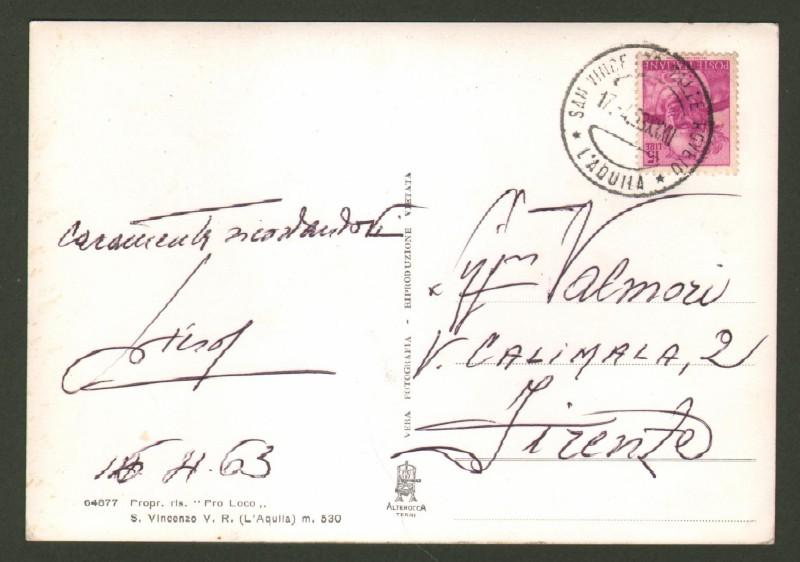 caramente ricordandoti
4 63
64877 Propr. ris. "Pro Loco„
S. Vincenzo V. R. (L'Aquila) m. 530
VERA FOTOGRAFIA - RIPRODUZIONE VIETATA
ALTEROCCA
TERNI
SAN VINCE VALLE ROVETO
17.-4.63
* L'AQUILA *
POSTE ITALIANE
15 LIRE
Valmori
V. CALIMALA, 2
Firenze